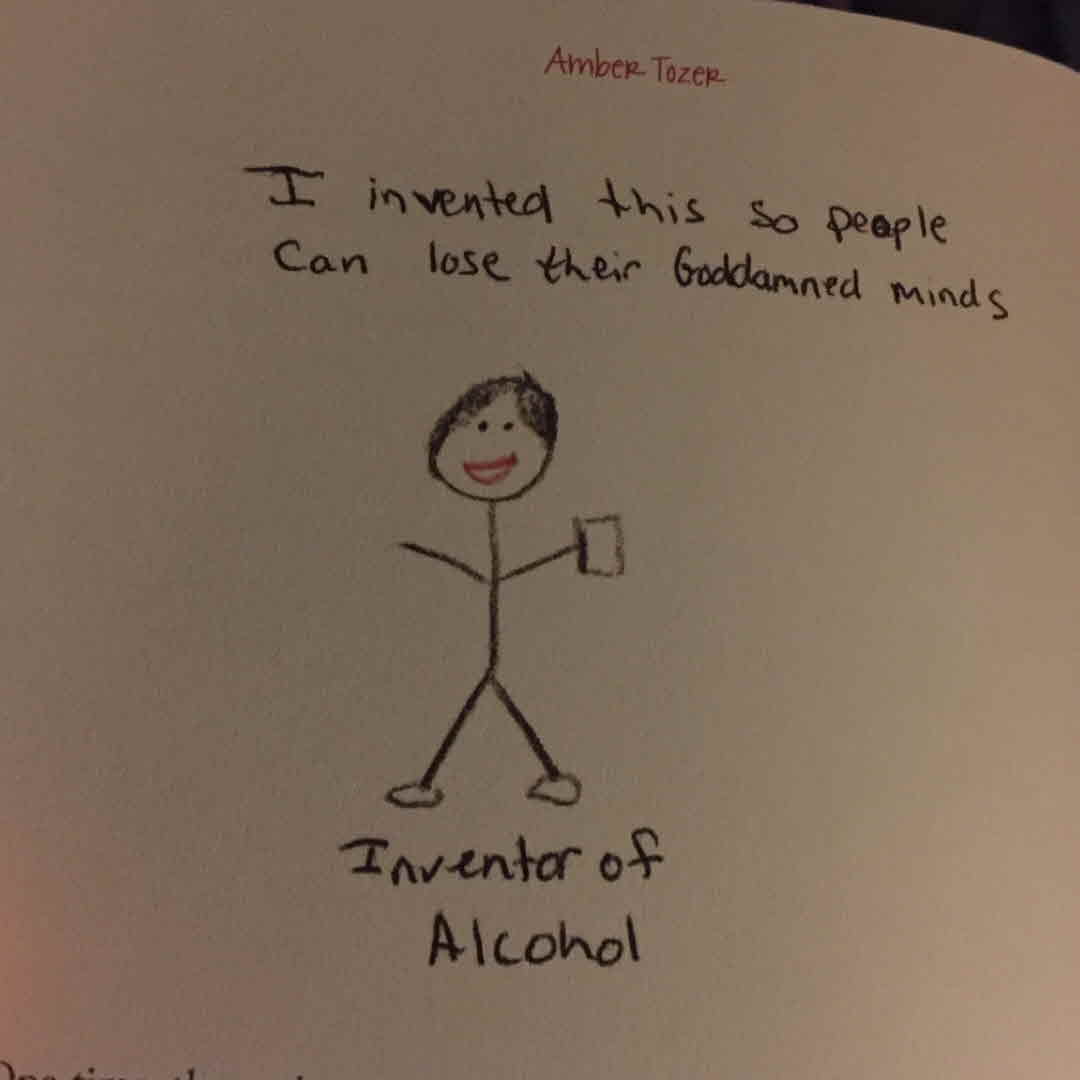 Amber Tozer
I invented this so people
Can lose their Goddamned minds
Inventor of
Alcohol